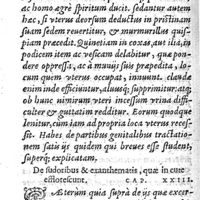 ac homo ægrè spiritum ducit. sedantur autem
hæc, si vterus deorsum deductus in pristinam
suam sedem reuertitur, & murmurillus quis-
piam præcedit. Quinetiam in coxas, aut ilia, in
podicem item ac vescam delabitur, quæ pon-
dere oppressa, ac à muuijs suis præpedita, lo-
cum quem vterus occupat, innuunt. clauda
enim inde efficiuntur, aluusq́; supprimitur. atq́;
ob hunc nimirum vteri incessum vrina diffi-
culter & guttatim redditur. Eorum quodque
lenitur, cum iam ad propria loca vterus reces-
sit. Habes de partibus genitalibus tractatio-
nem satis ijs quidem qui breues esse student,
superq́; explicatam,
De sudoribus & exanthematis, quæ in cute
efflorescunt. CAP. XXIII.
Æterùm quia suprà de ijs quæ excer-